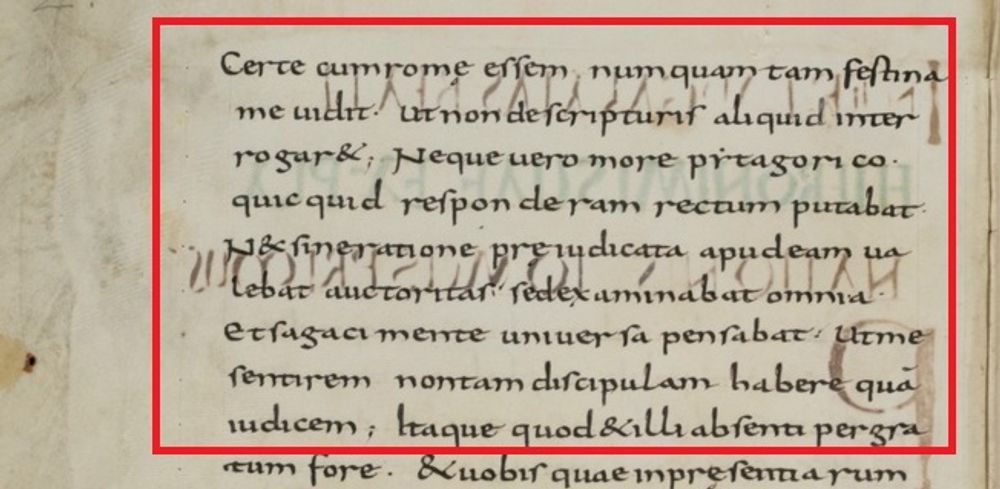 Certe cum rome essem. numquam tam festina
me uidit. ut non de scripturis aliquid inter
rogar&; Neque uero more pytagorico.
quicquid responderam rectum putabat.
N& sine ratione preiudicata apud eam ua
lebat auctoritas. sed examinabat omnia.
Et sagaci mente uniuersa pensabat. Ut me
sentirem non tam discipulam habere quā
iudicem; Itaque quod & illi absenti pergra
tum fore. & uobis quae in pręsentiarum